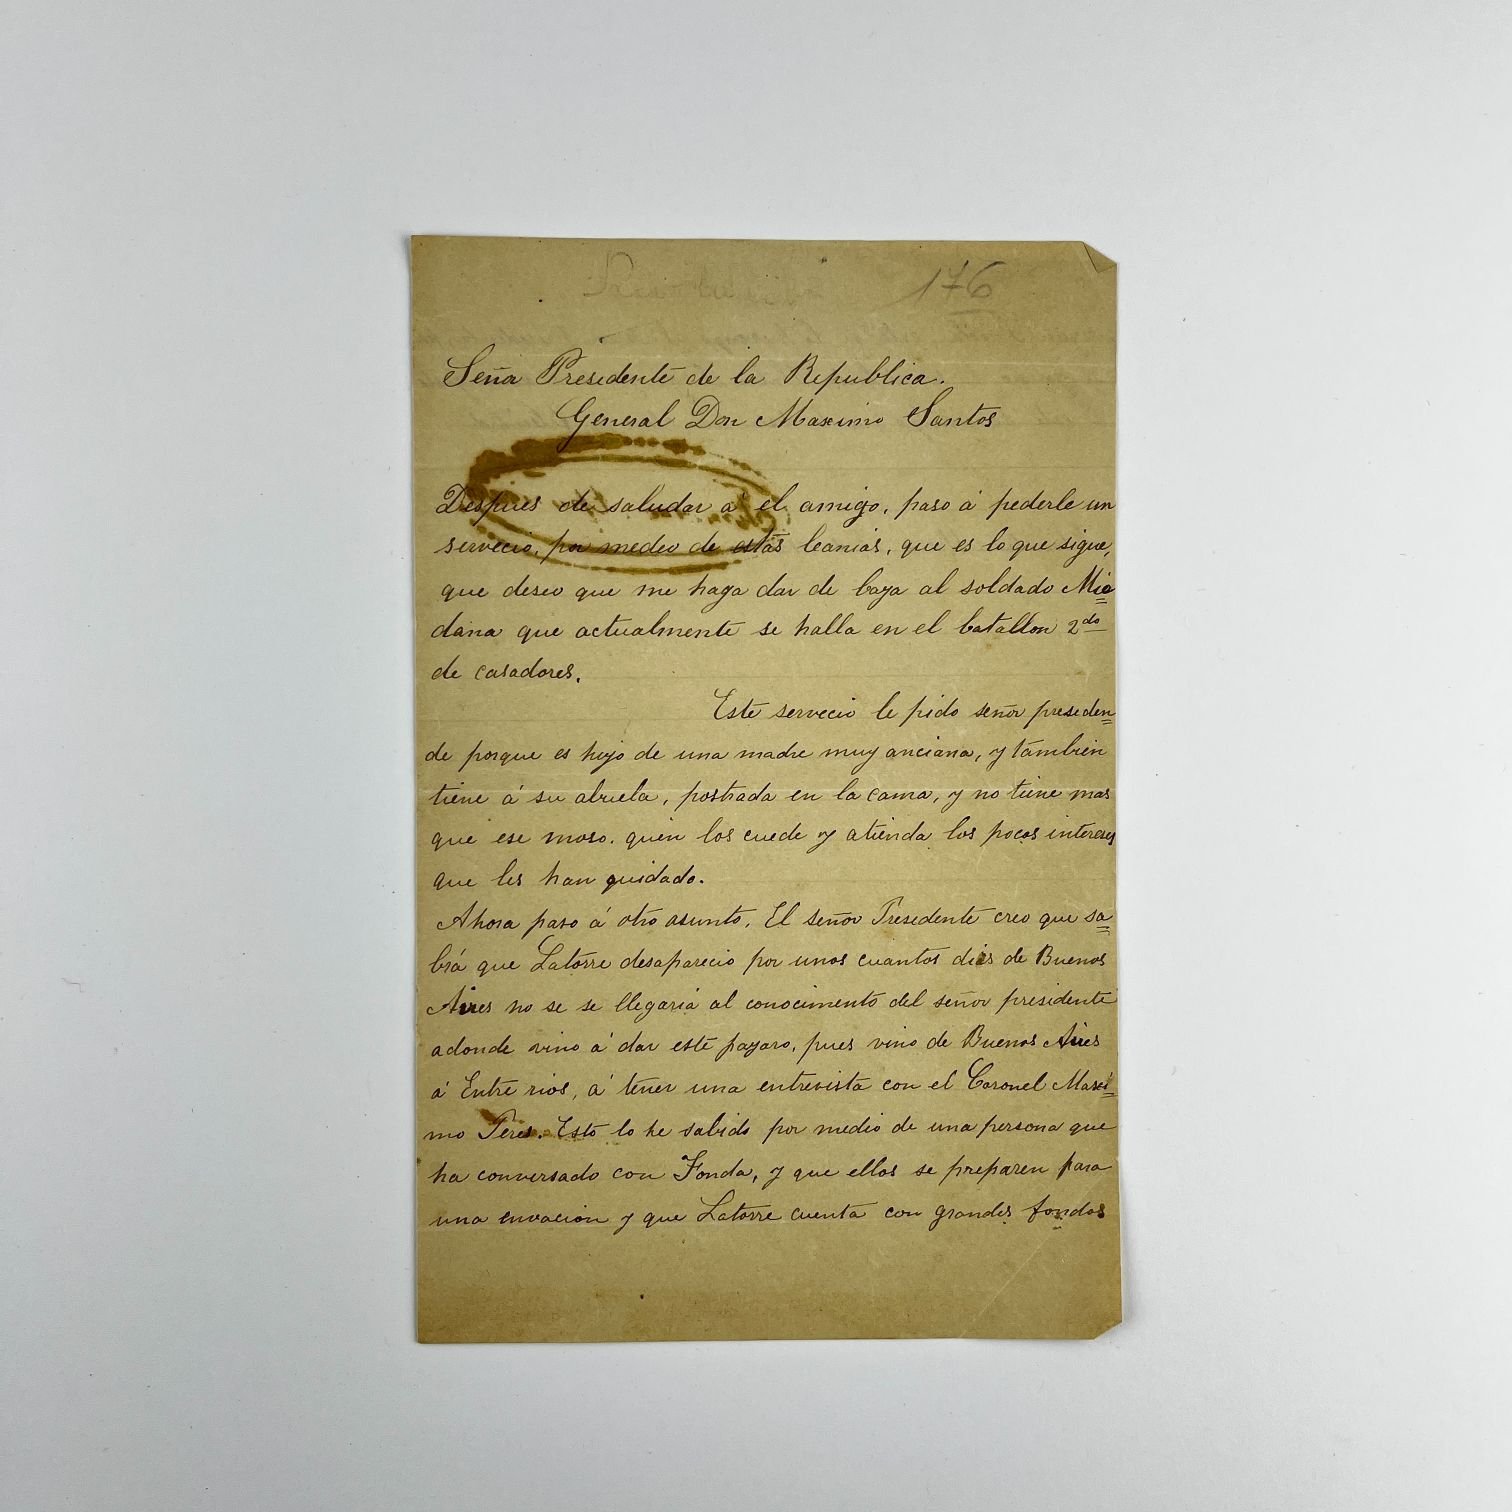 176
Señor Presidente de la Republica.
General Don Maximo Santos
Despues de saludar á el amigo, paso á pederle un
servecio, por medeo de estás leanias, que es lo que sigue,
que deseo que me haga dar de baya al soldado Mie=
dana que actualmente se halla en el batallon 2do
de casadores.
Este servecio le pido señor preseden=
de porque es hijo de una madre muy anciana, y tambien
tiene á su abuela, postrada en la cama, y no tiene mas
que ese moso. quien los cuede y atienda los pocos intereses
que les han quidado.
Ahora paso á otro asunto. El señor Presedente creo que sa=
brá que Latorre desaparecio por unos cuantos dias de Buenos
Aires no se se llegaria al conocimento del señor presidente
adonde vino á dar este payaro, pues vino de Buenos Aires
á Entre rios, á tener una entrevista con el Coronel Maxi=
mo Peres. Esto lo he sabido por medio de una persona que
ha conversado con Fonda, y que ellos se preparen para
una envacion y que Latorre cuenta con grandes fondos